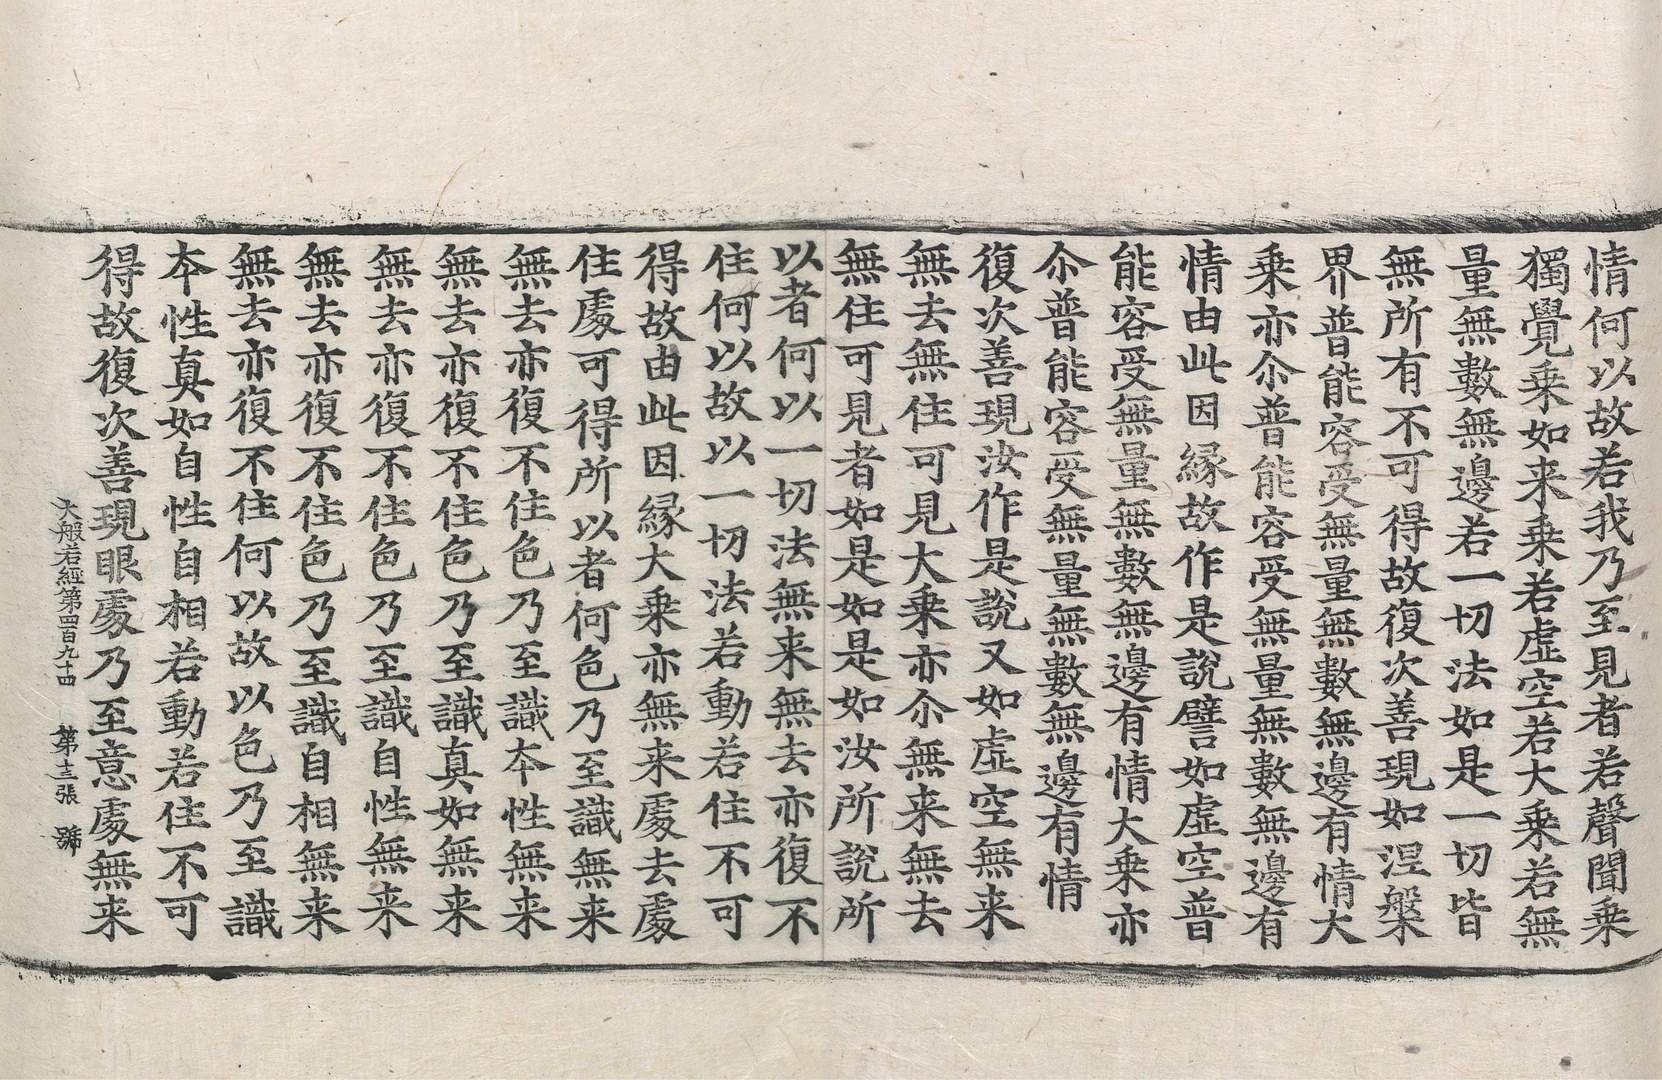 情何以故若我乃至見者若聲聞乗
獨覺乗如来乗若虛空若大乗若無
量無數無邊若一切法如是一切皆
無所有不可得故復次善現如涅槃
界普能容受無量無數無邊有情大
乗亦尒普能容受無量無數無邊有
情由此因緣故作是說譬如虛空普
能容受無量無數無邊有情大乗亦
尒普能容受無量無數無邊有情
復次善現汝作是說又如虛空無来
無去無住可見大乗亦尒無来無去
無住可見者如是如是如汝所說所
以者何以一切法無来無去亦復不
住何以故以一切法若動若住不可
得故由此因緣大乗亦無来處去處
住處可得所以者何色乃至識無来
無去亦復不住色乃至識夲性無来
無去亦復不住色乃至識真如無来
無去亦復不住色乃至識自性無来
無去亦復不住色乃至識自相無来
無去亦復不住何以故以色乃至識
夲性真如自性自相若動若住不可
得故復次善現眼處乃至意處無来
大般若經第四百九十四 第十三張 號